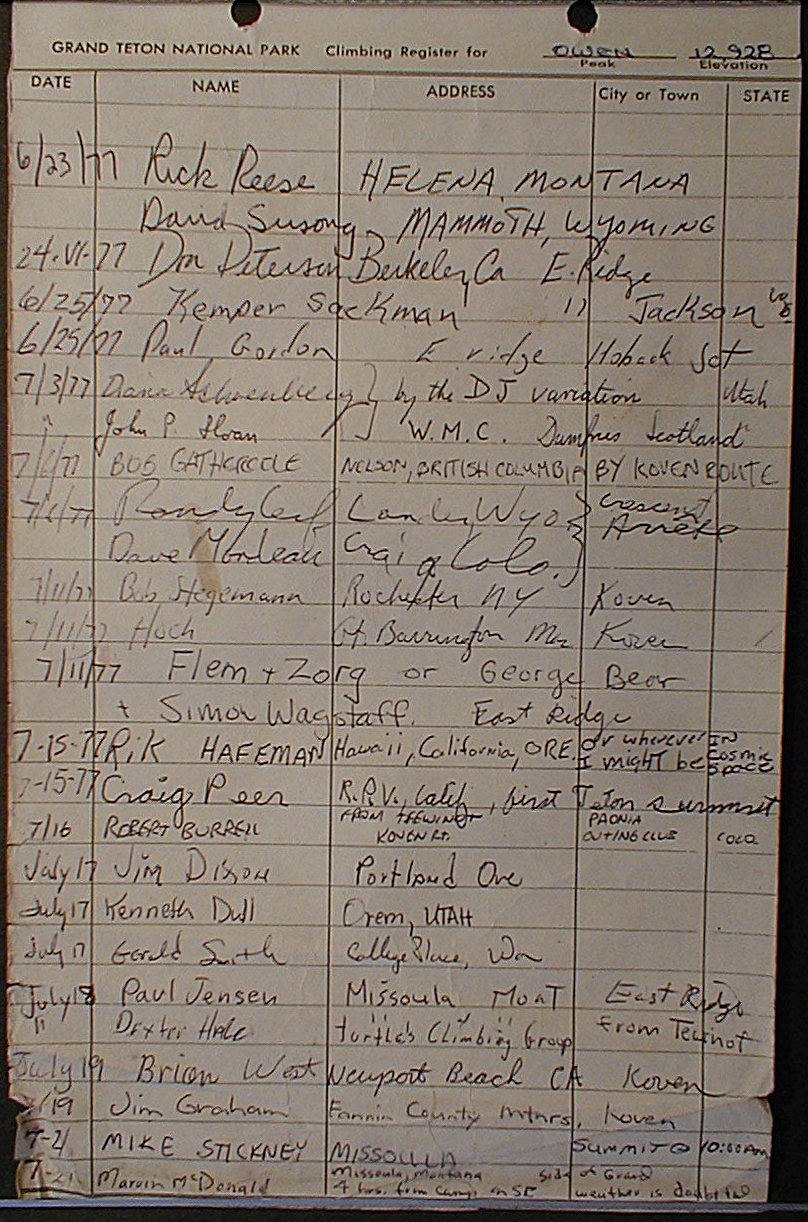 GRAND TETON NATIONAL PARK Climbing Register for OWEN 12,928
Peak Elevation
DATE NAME ADDRESS City or Town STATE
6/23/77 Rick Reese HELENA, MONTANA
David Susong, MAMMOTH, WYOMING
24·VI·77 Don Peterson Berkeley, Ca E. Ridge
6/25/77 Kemper Sackman " Jackson
6/25/77 Paul Gordon E ridge Hoback Jct
7/3/77 Diana } by the DJ variation Utah
" John P. Sloan } W.M.C. Dumfries Scotland
77 BOB GATHERCOLE NELSON, BRITISH COLUMBIA BY KOVEN ROUTE
77 Randy Lander, Wyo } Crescent
Dave Craig Colo. } Arrete
7/11/77 Bob Stegemann Rochester NY Koven
7/11/77 Hoch Gt. Barrington Ma Koven
7/11/77 Flem + Zorg or George Bear
+ Simon Wagstaff. East Ridge
7-15-77 RiK HAFEMAN Hawaii, California, ORE. or wherever IN
I might be COSMIC
SPACE
7-15-77 Craig Peer R.P.V., Calif, first Teton summit
7/16 ROBERT BURRELL FROM TEEWINOT PAONIA
KOVEN RT. OUTING CLUB COLO.
July 17 Jim Dixon Portland Ore
July 17 Kenneth Dull Orem, UTAH
July 17 Gerald Smith College Place, Wa
July 18 Paul Jensen Missoula MONT East Ridge
" Dexter Hale Turtle's Climbing Group from Teewinot
July 19 Brian West Newport Beach CA Koven
7/19 Jim Graham Fannin County Mtnrs, Koven
7-21 MIKE STICKNEY MISSOULA SUMMIT @ 10:00 AM
7-21 Marvin McDonald Missoula, Montana side of Grand
4 hrs. from camp on SE weather is doubtful